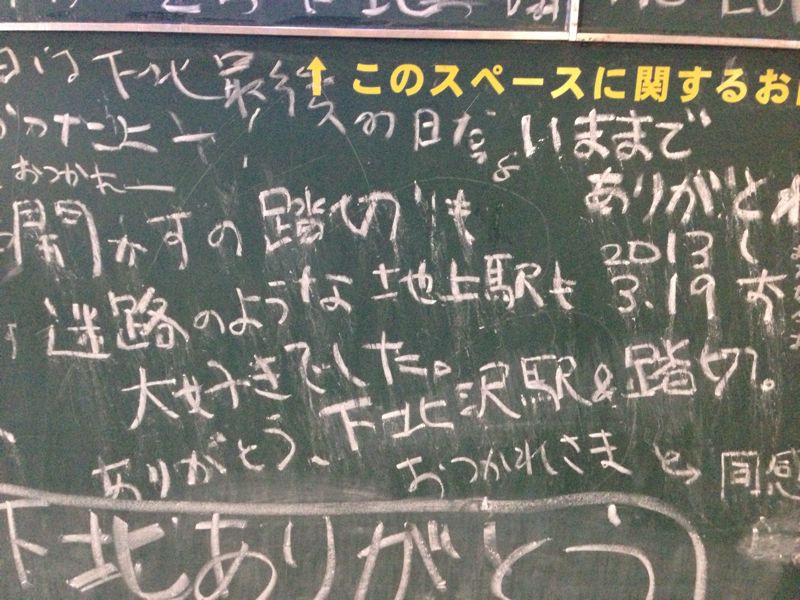 下北
日は下北最後の日だよ
↑このスペースに関するお
いままで
ありがとね
おつかれー
開かずの踏切りも
2013
3.19
迷路のような地上駅も
大好きでした。
下北沢駅&踏切。
ありがとう、おつかれさま
→同感
下北ありがとう